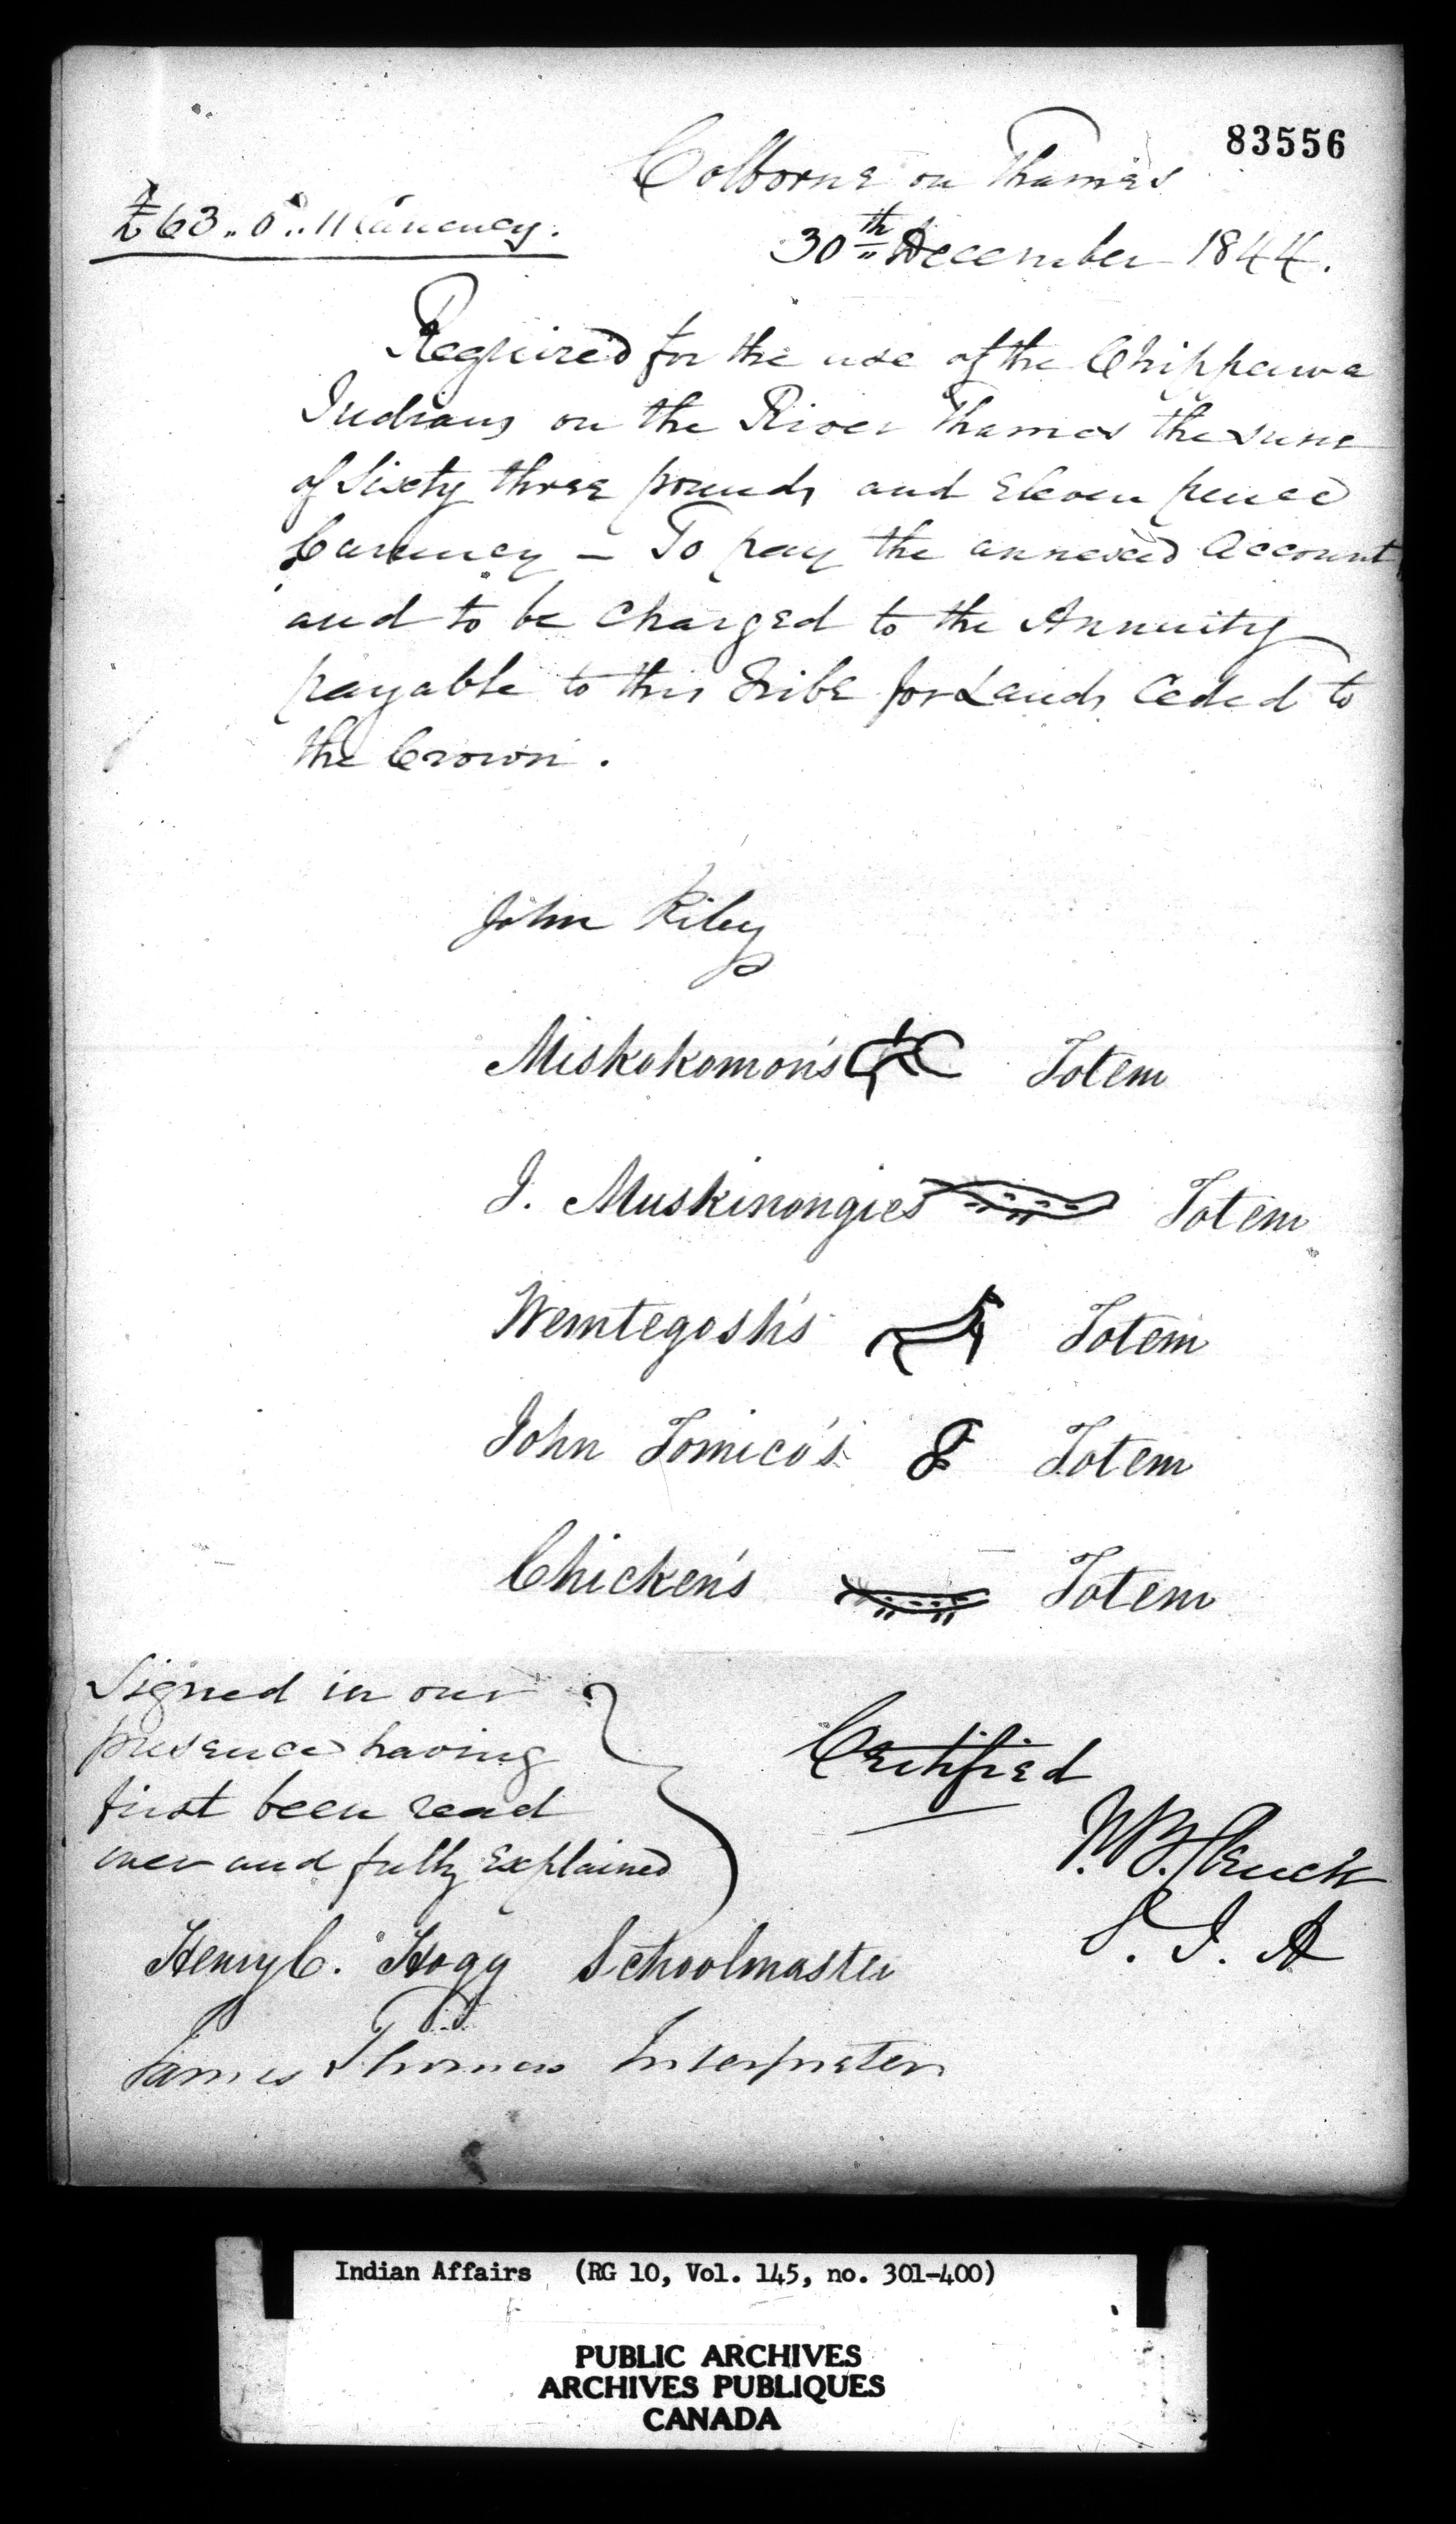 83556
Colborne on Thames
£63..0..11 Currency.
30th December 1844.
Required for the use of the Chippawa
Indians on the River Thames the sum
of Sixty three pounds and Eleven pence
Currency – To pay the annexed Account,
and to be Charged to the Annuity
payable to this Tribe for Lands Ceded to
the Crown.
John Riley
Miskokomon's Totem
J. Muskinongies Totem
Wemtegosh's Totem
John Tomico's Totem
Chicken's Totem
Signed in our
presence having
first been read
over and fully Explained
Certified
Henry C. Hogg Schoolmaster
S. I. A
James Thomas Interpreter
Indian Affairs (RG 10, Vol. 145, no. 301-400)
PUBLIC ARCHIVES
ARCHIVES PUBLIQUES
CANADA